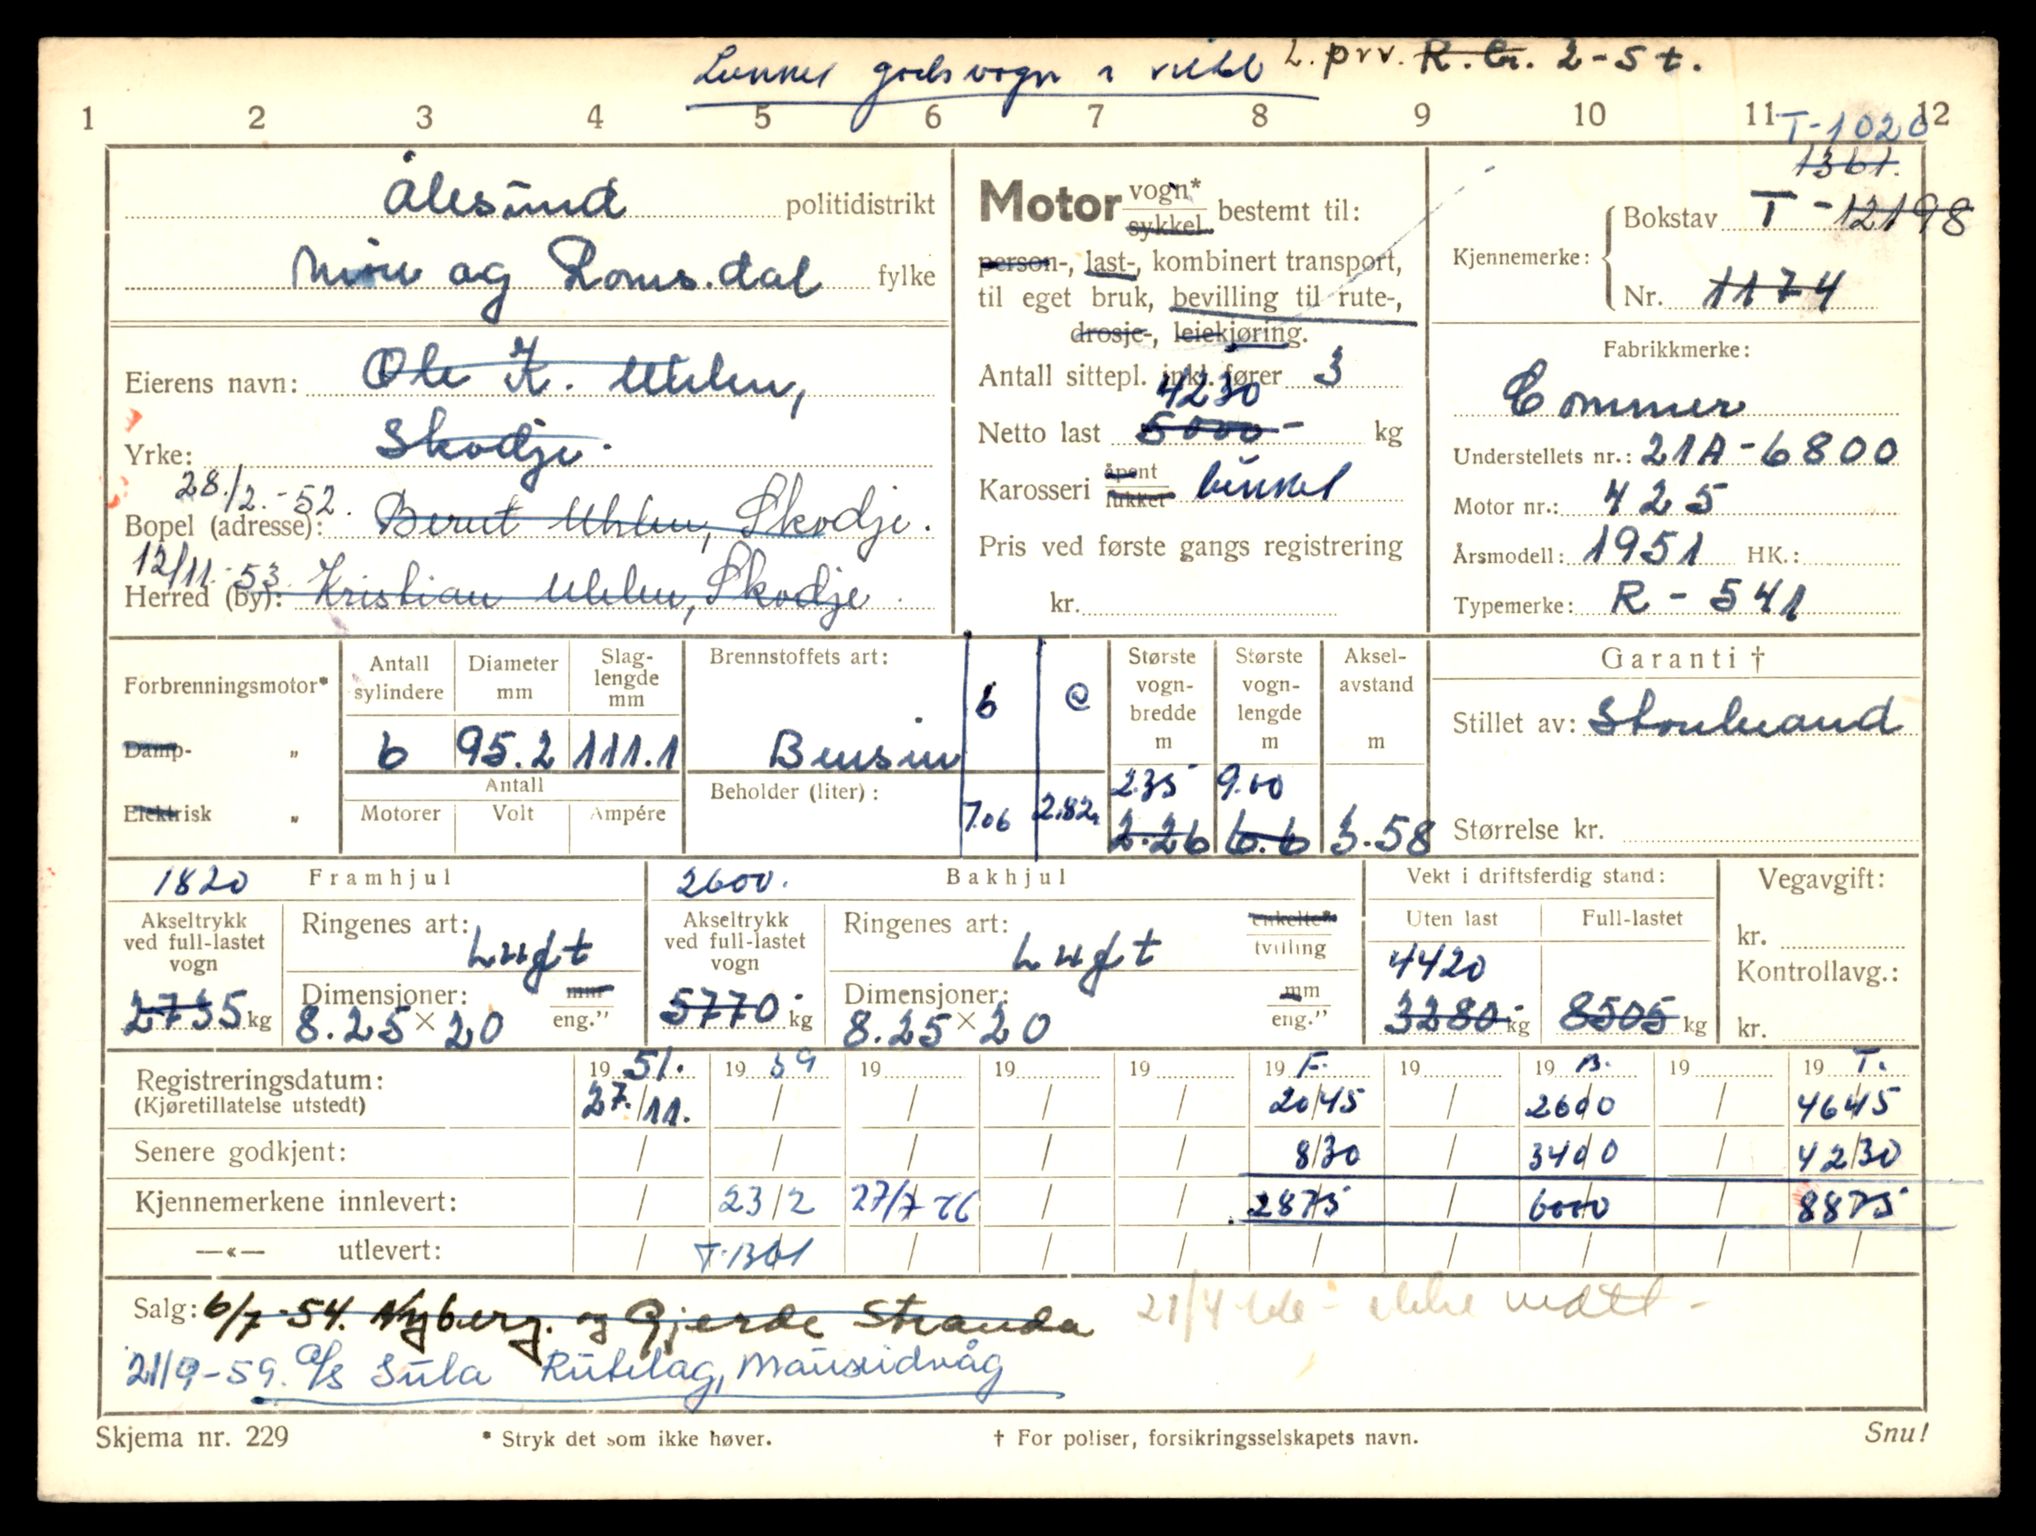 godsvogn L. prv. R. Er. 2-5 t.
1 2 3 4 5 6 7 8 9 10 11 12
T-1020
1361.
Ålesund politidistrikt
Møre og Romsdal fylke
Eierens navn: Ole K. Uhlen,
Yrke: Skodje.
28./2.-52.
Bopel (adresse): Bernt Uhlen, Skodje.
12/11.-53
Herred (by): Kristian Uhlen, Skodje
Motor vogn* sykkel bestemt til:
person-, last-, kombinert transport,
til eget bruk, bevilling til rute-,
drosje-, leiekjøring.
Antall sittepl. inkl. fører 3
4230
Netto last 5000- kg
Karosseri åpent lukket lukket
Pris ved første gangs registrering
kr.
Kjennemerke: Bokstav T-12198
Nr. 1174
Fabrikkmerke:
Commer
Understellets nr.: 21A-6800
Motor nr.: 425
Årsmodell: 1951 HK.:
Typemerke: R-541
Forbrenningsmotor*
Damp- "
Elektrisk "
Antall sylindere 6
Diameter mm 95.2
Slaglengde mm 111.1
Antall
Motorer Volt Ampére
Brennstoffets art:
Bensin
Beholder (liter):
b c
7.06 2.82
Største vognbredde m
2.35
2.26
Største vognlengde m
9.00
6.6
Akselavstand m
3.58
Garanti †
Stillet av: Storebrand
Størrelse kr.
1820 Framhjul
Akseltrykk ved full-lastet vogn
2735 kg
Ringenes art: Luft
Dimensjoner: mm eng."
8.25 × 20
2600. Bakhjul
Akseltrykk ved full-lastet vogn
5770- kg
Ringenes art: Luft enkelte* tvilling
Dimensjoner: mm eng."
8.25 × 20
Vekt i driftsferdig stand:
Uten last Full-lastet
4420
3280- kg 8505 kg
Vegavgift:
kr.
Kontrollavg.:
kr.
Registreringsdatum: 19 51. 19 59 19 19 19 19 F. 19 19 B. 19 19 T.
(Kjøretillatelse utstedt) 27./11. 2045 2600 4645
Senere godkjent: 830 3400 4230
Kjennemerkene innlevert: 23/2 27/7 66 2875 6000 8875
—«— utlevert: T-1361
Salg: 6/7-54. Nyberg. og Gjerde Stranda 21/4 ikke møtt -
21/9-59. A/S Sula Rutelag, Mauseidvåg
Skjema nr. 229 * Stryk det som ikke høver. † For poliser, forsikringsselskapets navn. Snu!